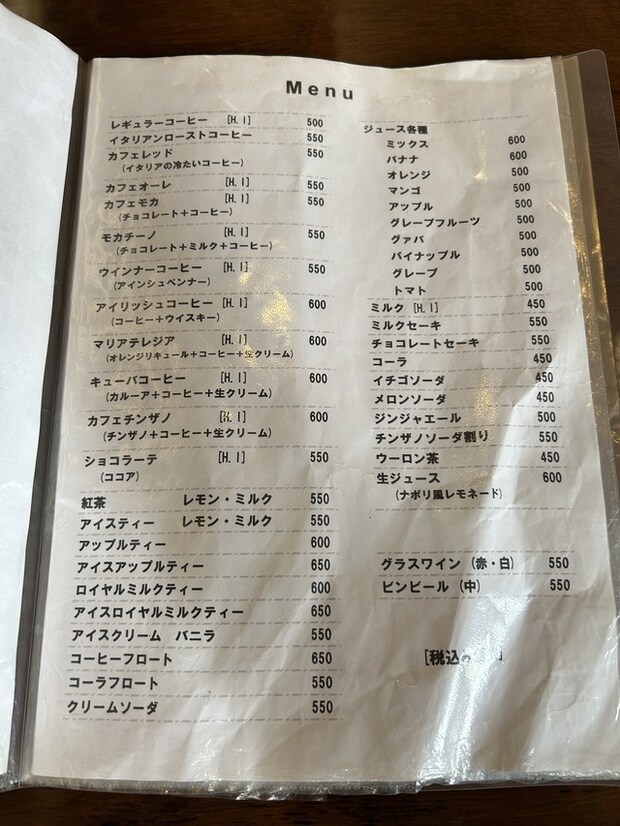 Menu
レギュラーコーヒー [H. I] 500
イタリアンローストコーヒー 550
カフェレッド 550
(イタリアの冷たいコーヒー)
カフェオーレ [H. I] 550
カフェモカ [H. I] 550
(チョコレート+コーヒー)
モカチーノ [H. I] 550
(チョコレート+ミルク+コーヒー)
ウインナーコーヒー [H. I] 550
(アインシュペンナー)
アイリッシュコーヒー [H. I] 600
(コーヒー+ウイスキー)
マリアテレジア [H. I] 600
(オレンジリキュール+コーヒー+生クリーム)
キューバコーヒー [H. I] 600
(カルーア+コーヒー+生クリーム)
カフェチンザノ [H. I] 600
(チンザノ+コーヒー+生クリーム)
ショコラーテ [H. I] 550
(ココア)
紅茶 レモン・ミルク 550
アイスティー レモン・ミルク 550
アップルティー 600
アイスアップルティー 650
ロイヤルミルクティー 600
アイスロイヤルミルクティー 650
アイスクリーム バニラ 550
コーヒーフロート 650
コーラフロート 550
クリームソーダ 550
ジュース各種
ミックス 600
バナナ 600
オレンジ 500
マンゴ 500
アップル 500
グレープフルーツ 500
グァバ 500
パイナップル 500
グレープ 500
トマト 500
ミルク [H. I] 450
ミルクセーキ 550
チョコレートセーキ 550
コーラ 450
イチゴソーダ 450
メロンソーダ 450
ジンジャエール 500
チンザノソーダ割り 550
ウーロン茶 450
生ジュース 600
(ナポリ風レモネード)
グラスワイン (赤・白) 550
ビンビール (中) 550
[税込